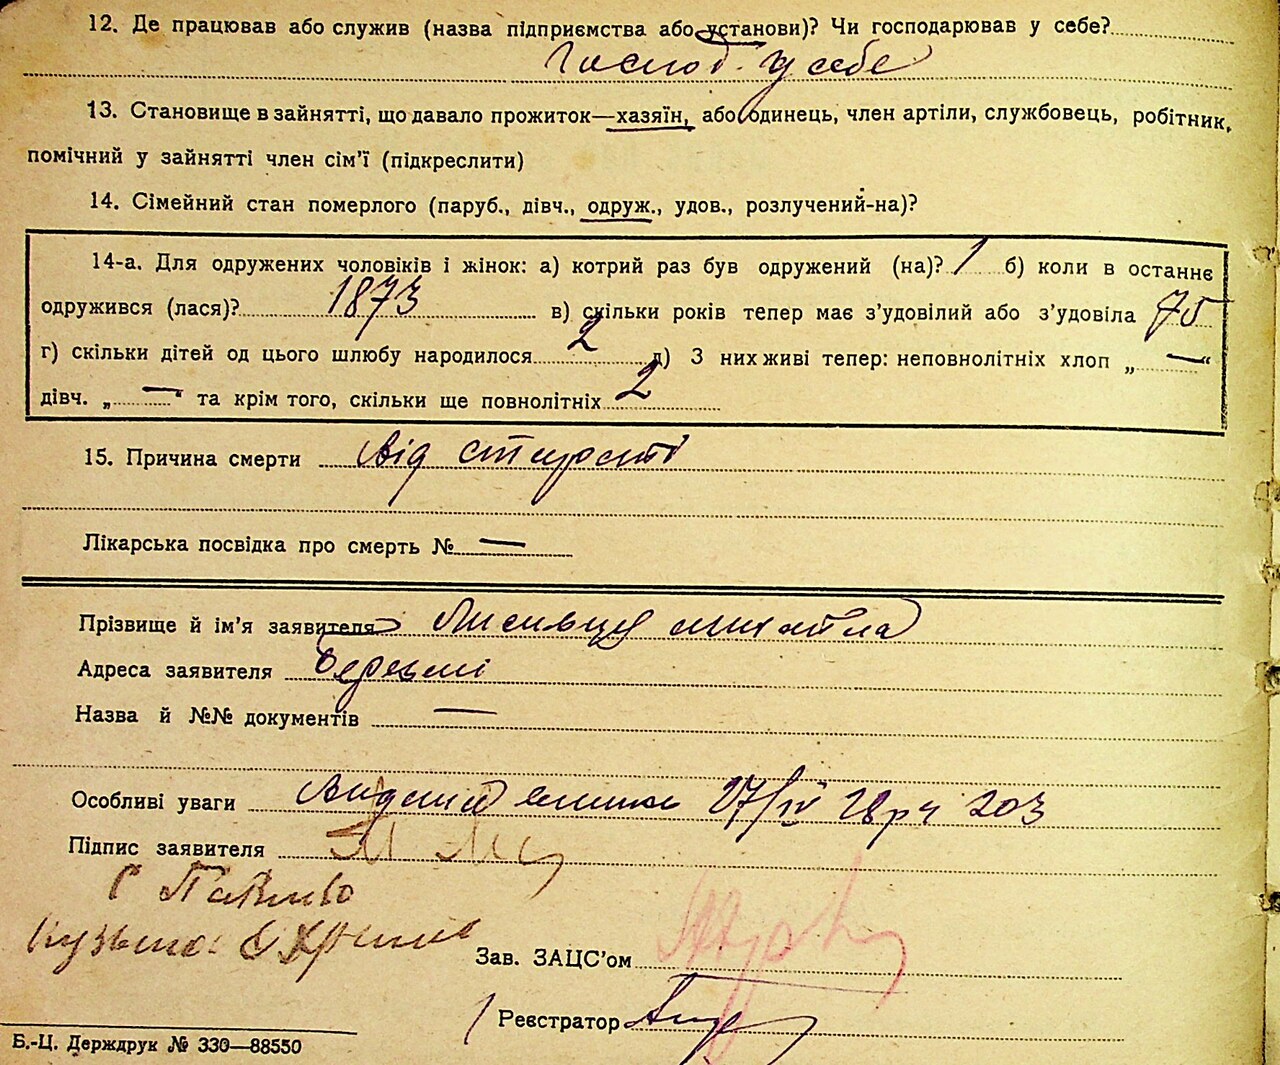 12. Де працював або служив (назва підприємства або установи)? Чи господарював у себе?
Господ. у себе
13. Становище в зайнятті, що давало прожиток—хазяїн, або одинець, член артіли, службовець, робітник,
помічний у зайнятті член сім'ї (підкреслити)
14. Сімейний стан померлого (паруб., дівч., одруж., удов., розлучений-на)?
14-а. Для одружених чоловіків і жінок: а) котрий раз був одружений (на)? 1 б) коли в останнє
одружився (лася)? 1873 в) скільки років тепер має з'удовілий або з'удовіла 75
г) скільки дітей од цього шлюбу народилося 2 д) З них живі тепер: неповнолітніх хлоп „ — “
дівч. „ — " та крім того, скільки ще повнолітніх 2
15. Причина смерти від старости
Лікарська посвідка про смерть № —
Прізвище й ім'я заявителя Михайла
Адреса заявителя
Назва й №№ документів —
Особливі уваги 27/IV 28 р ч 203
Підпис заявителя
Кузьма
Зав. ЗАЦС'ом
Реєстратор
Б.-Ц. Держдрук № 330—88550